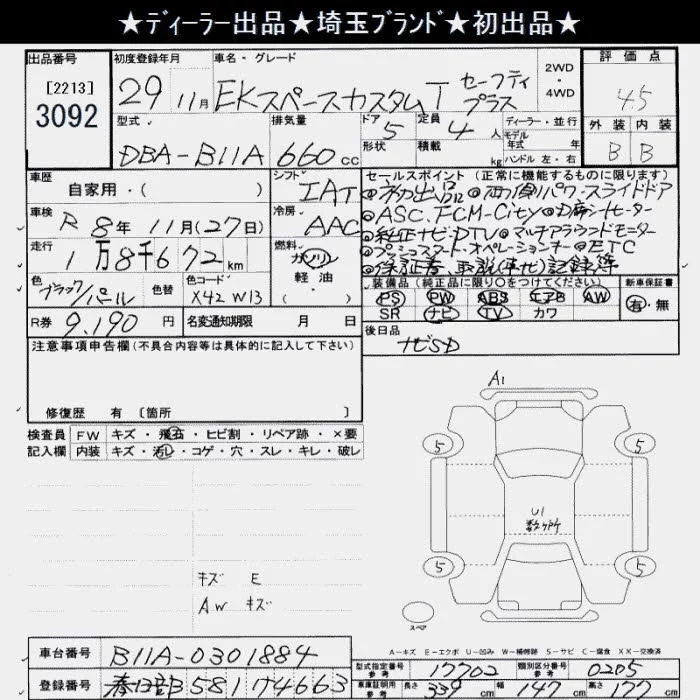 ★ディーラー出品★埼玉ブランド★初出品★
出品番号 初度登録年月 車名・グレード 2WD・4WD 評価点
[2213]
3092
29 11月 EKスペースカスタムT セーフティプラス 4.5
型式 排気量 ドア 5 定員 4人 ディーラー・並行 外装 内装
DBA-B11A 660cc 形状 積載 kg モデル年式 年式 ハンドル 左・右 B B
車歴 自家用・( ) シフト IAT
セールスポイント (正常に機能するものに限ります)
車検 R8年11月(27日) 冷房 AAC
走行 1万8千672km 燃料 ガソリン 軽・油
◎初出品 ◎両側パワースライドドア
◎ASC.FCM-City
◎純正ナビ.DTV ◎マルチアラウンドモニター
◎ETC
◎保証書、取説(車ナビ)記録簿
色 ブラック/パール 色替 色コード X42 W13
装備品 (純正品に限り○をつけてください) 新車保証書
PS PW ABS エアB AW 有・無
SR ナビ TV カワ
R券 9,190円 名変通知期限 月 日
後日品 ナビSD
注意事項申告欄(不具合内容等は具体的に記入して下さい)
修復歴 有 [箇所 ]
検査員 FW キズ・飛石・ヒビ割・リペア跡・×要
記入欄 内装 キズ・汚レ・コゲ・穴・スレ・キレ・破レ
A1
5 5
U1
数ヶ所
5 5
キズ E
AW キズ
スペア
A-キズ E-エクボ U-凹み W-補修跡 S-サビ C-腐食 XX-交換済
車台番号 B11A-0301884
型式指定番号 参考 17702 類別区分番号 参考 0205
登録番号 春日部581 ｿ4663
車庫証明用 参考 長さ 339cm 幅 147cm 高さ 177cm